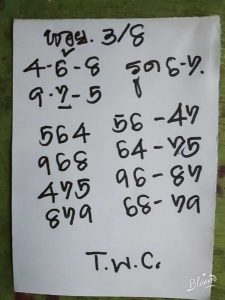 พฤ. 3/8
4-6-8 รูด 6-7.
9-7-5
564 56-47
968 64-75
475 96-87
879 68-79
T.W.C.
Bloom